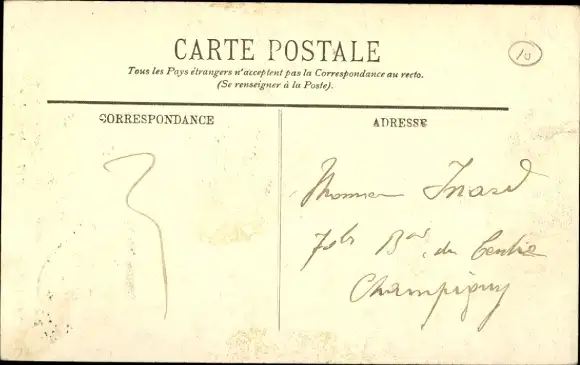 CARTE POSTALE
Tous les Pays étrangers n'acceptent pas la Correspondance au recto.
(Se renseigner à la Poste).
10
CORRESPONDANCE
ADRESSE
du Centre
Champigny